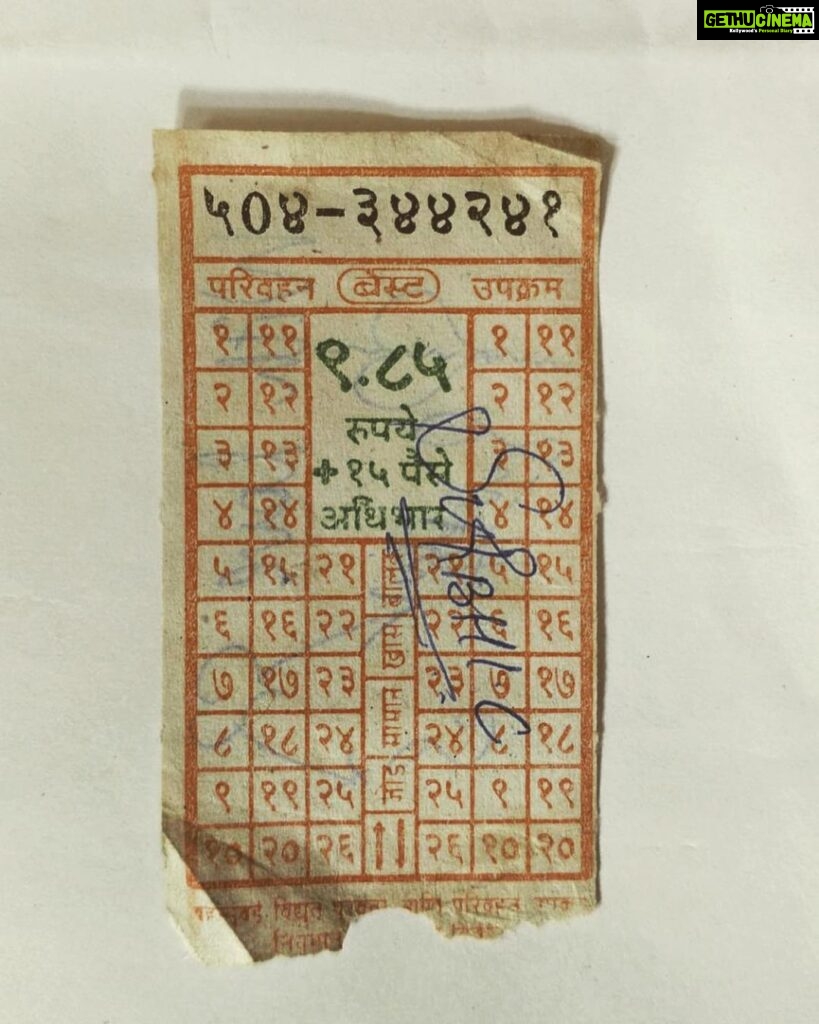 GETHUCINEMA
Kollywood's Personal Diary
५0४-३४४२४१
परिवहन बेस्ट उपक्रम
१ ११ ९.८५ १ ११
२ १२ रुपये २ १२
३ १३ +१५ पैसे ३ १३
४ १४ अधिभार ४ १४
५ १५ २१ २१ ५ १५
६ १६ २२ खास २२ ६ १६
७ १७ २३ २३ ७ १७
८ १८ २४ सामान २४ ८ १८
९ १९ २५ २५ ९ १९
१० २० २६ ↑↓ २६ १० २०
विद्युत पुरवठा आणि परिवहन